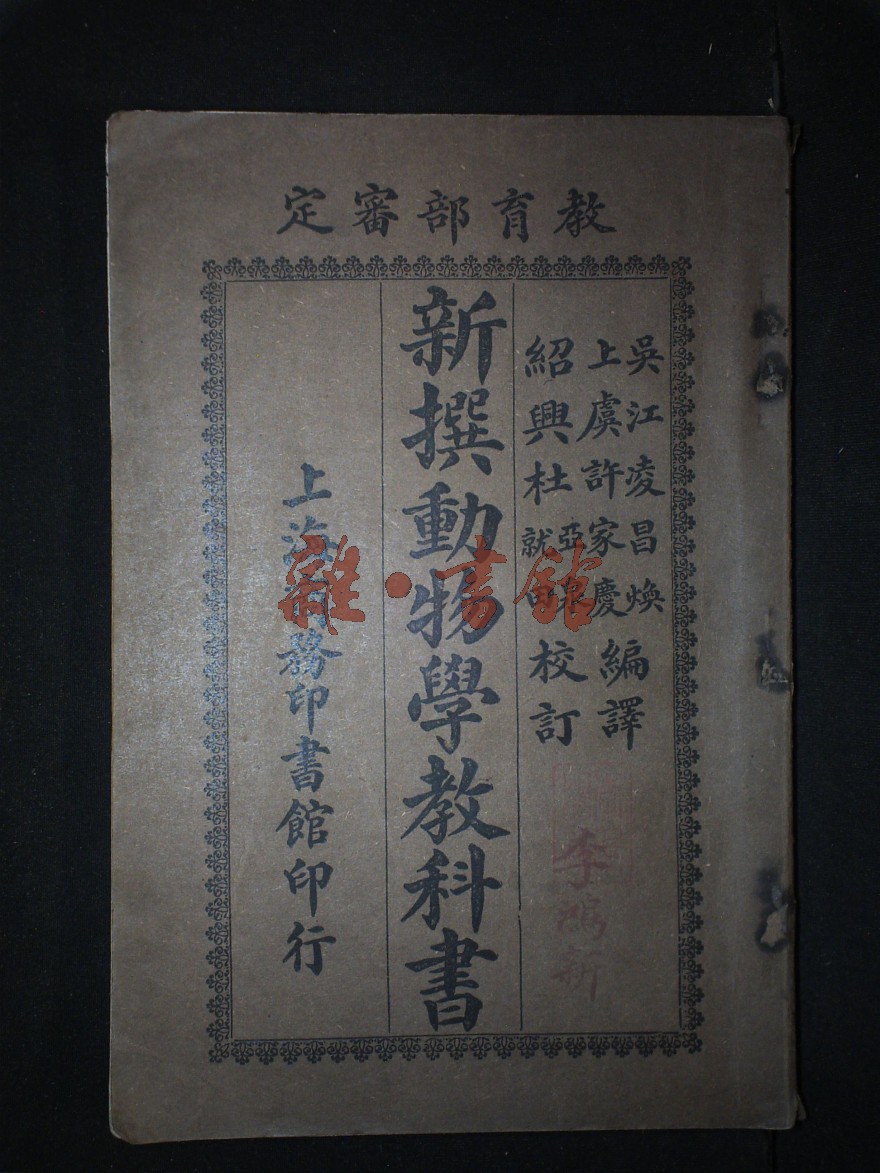 教育部審定
吳江凌昌煥
上虞許家慶編譯
紹興杜亞泉
就田校訂
新撰動物學教科書
上海商務印書館印行
李鴻新
雜·書館